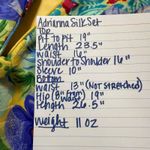 Adrianna Silk Set
Top
Pit to Pit 19"
Length 23.5"
waist 16"
Shoulder to Shoulder 16"
Sleeve 10"
Bottom
waist 13" (Not stretched)
Hip (8" waist) 19"
length 26.5"
Weight 11 oz